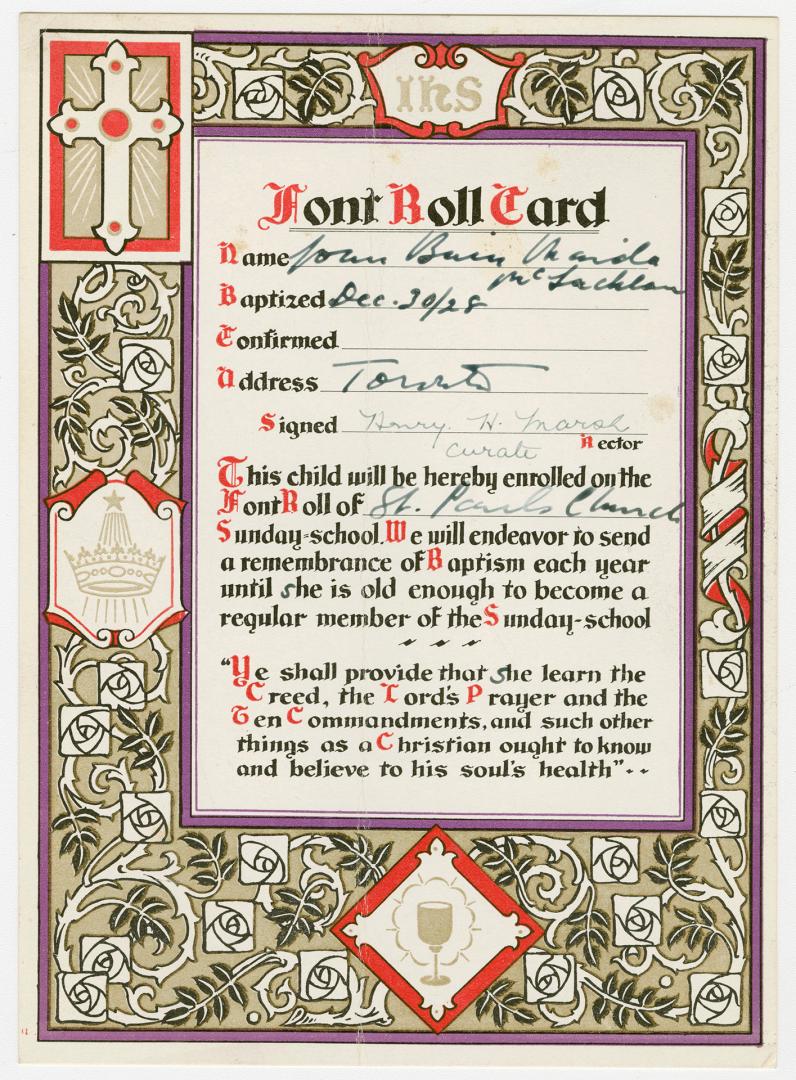 IHS
Font Roll Card
Name Joan
McLachlan
Baptized Dec. 30/28
Confirmed
Address Toronto
Signed Henry H. Marsh
curate Rector
This child will be hereby enrolled on the
Font Roll of St. Pauls Church
Sunday-school. We will endeavor to send
a remembrance of Baptism each year
until she is old enough to become a
regular member of the Sunday-school
"Ye shall provide that she learn the
Creed, the Lord's Prayer and the
Ten Commandments, and such other
things as a Christian ought to know
and believe to his soul's health"--